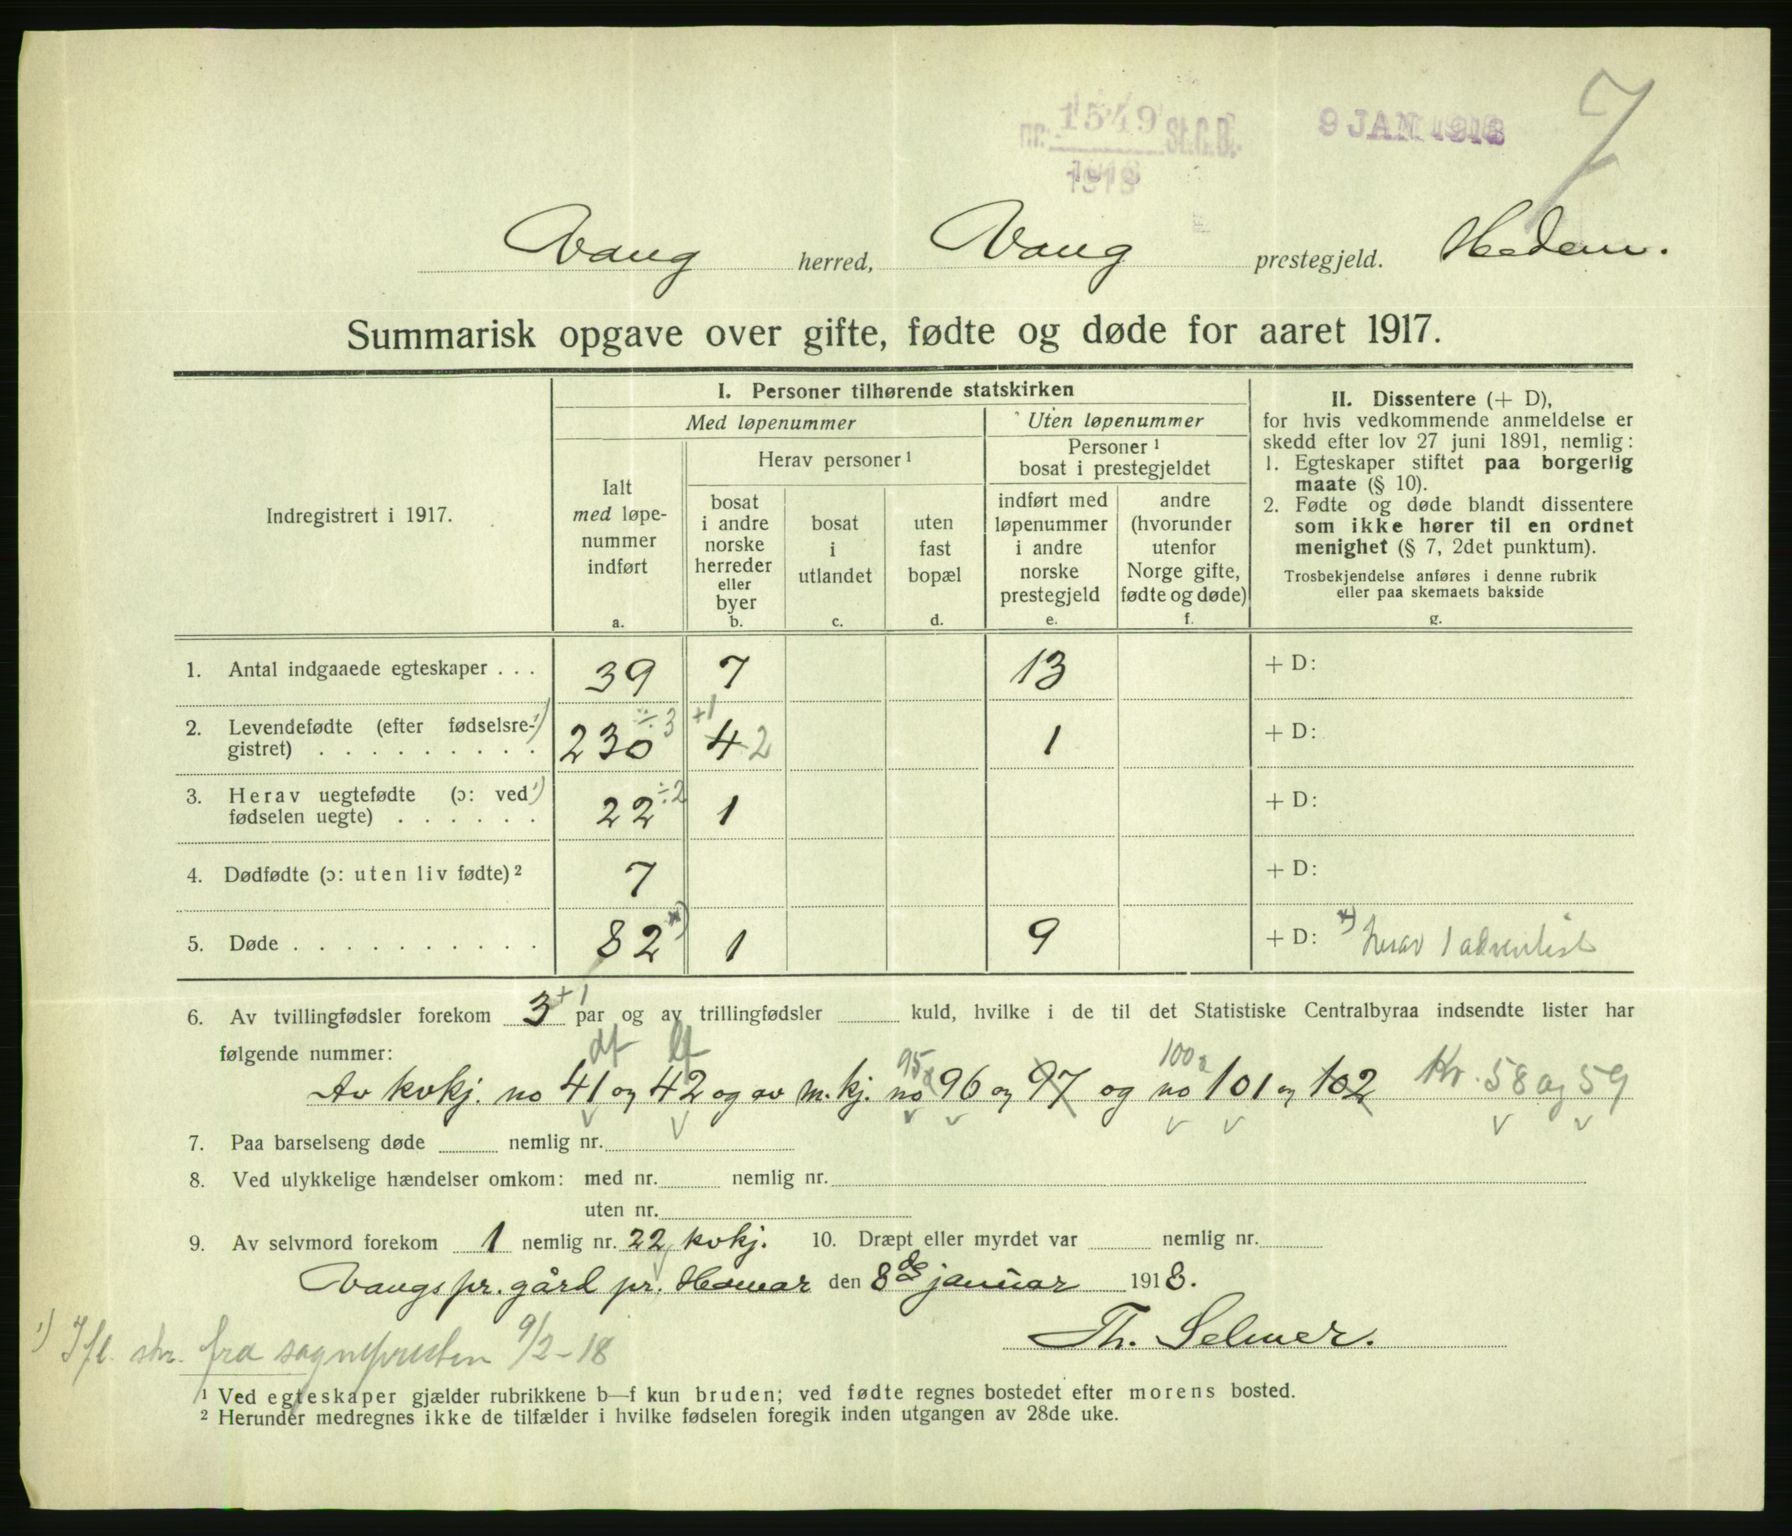 nr. 1549 St.C.B.
1918
9 JAN 1918
7
Vang herred, Vang prestegjeld. Hedem.
Summarisk opgave over gifte, fødte og døde for aaret 1917.
Indregistrert i 1917.
I. Personer tilhørende statskirken
Med løpenummer
Uten løpenummer
Ialt
med løpe-
nummer
indført
a.
Herav personer ¹
bosat
i andre
norske
herreder
eller
byer
b.
bosat
i
utlandet
c.
uten
fast
bopæl
d.
Personer ¹
bosat i prestegjeldet
indført med
løpenummer
i andre
norske
prestegjeld
e.
andre
(hvorunder
utenfor
Norge gifte,
fødte og døde)
f.
II. Dissentere (+ D),
for hvis vedkommende anmeldelse er
skedd efter lov 27 juni 1891, nemlig:
1. Egteskaper stiftet paa borgerlig
maate (§ 10).
2. Fødte og døde blandt dissentere
som ikke hører til en ordnet
menighet (§ 7, 2det punktum).
Trosbekjendelse anføres i denne rubrik
eller paa skemaets bakside
g.
1. Antal indgaaede egteskaper . . . 39 7 13 + D:
2. Levendefødte (efter fødselsre- ¹)
gistret) . . . . . . . . . 230 ÷3 +1 4 2 1 + D:
3. Herav uegtefødte (ɔ: ved ¹)
fødselen uegte) . . . . . . 22 ÷2 1 + D:
4. Dødfødte (ɔ: uten liv fødte) ² 7 + D:
5. Døde . . . . . . . . . . 82 *) 1 9 + D: *) herav 1 adventist
6. Av tvillingfødsler forekom 3 +1 par og av trillingfødsler kuld, hvilke i de til det Statistiske Centralbyraa indsendte lister har
følgende nummer:
df lf 95 100
Av kvkj. no 41 og 42 og av m.kj. no 96 og 97 og no 101 og 102 Kv. 58 og 59
7. Paa barselseng døde nemlig nr.
8. Ved ulykkelige hændelser omkom: med nr. nemlig nr.
uten nr.
9. Av selvmord forekom 1 nemlig nr. 22 kvkj. 10. Dræpt eller myrdet var nemlig nr.
Vangs pr.gård pr. Hamar den 8de januar 1918.
Th. Selmer.
¹) Ifl. skr. fra sognepresten 9/2-18
¹ Ved egteskaper gjælder rubrikkene b—f kun bruden; ved fødte regnes bostedet efter morens bosted.
² Herunder medregnes ikke de tilfælder i hvilke fødselen foregik inden utgangen av 28de uke.